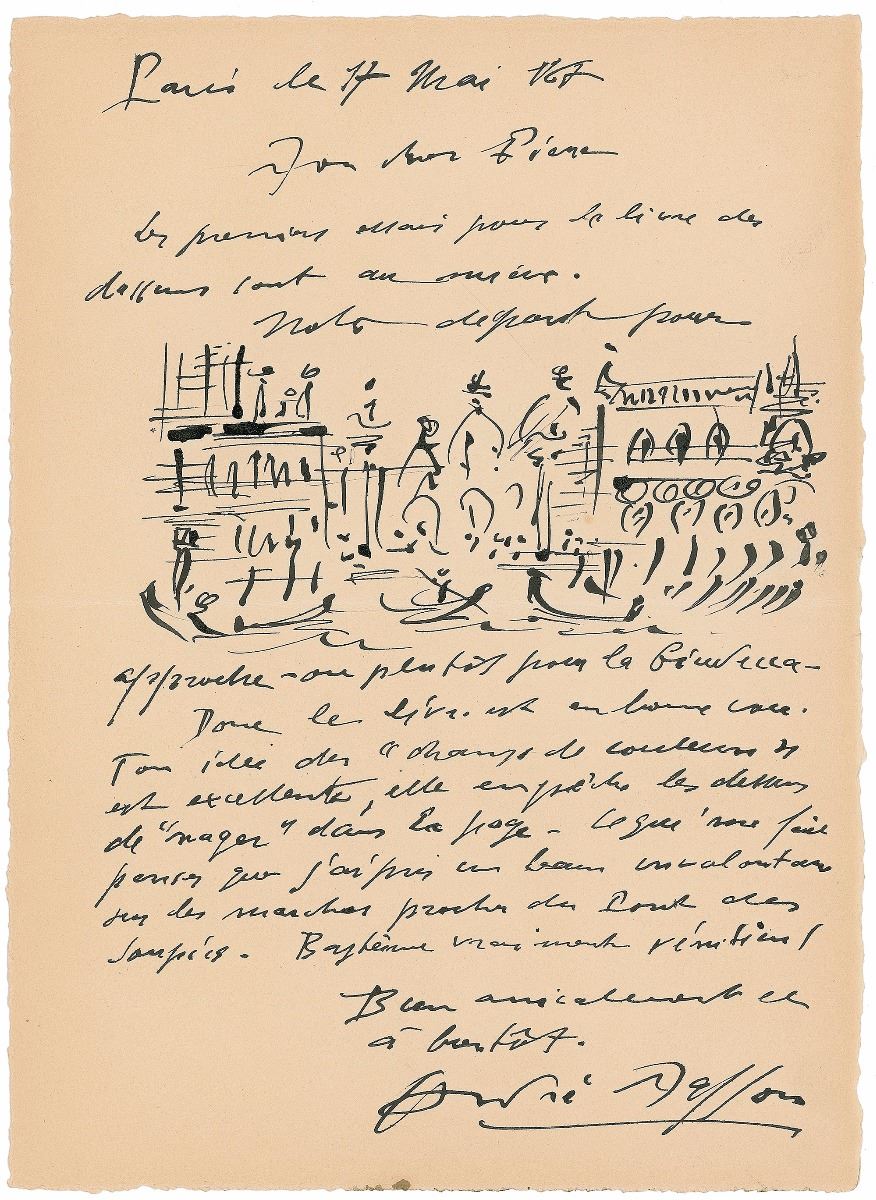 Paris le 17 Mai 167
Mon cher Pierre
Les premiers essais pour le livre des
dessins sont au musée.
Notre départ pour
approche - ou plutôt pour la Giudecca -
Donc le livre est en bonne voie.
Ton idée des "champs de couleurs"
est excellente, elle empêche les dessins
de "nager" dans la page - Ce qui me fait
penser que j'ai pris un bain involontaire
sur les marches proche du Pont des
Soupirs. Baptême vraiment vénitien !
Bien amicalement et
à bientôt.
André Masson